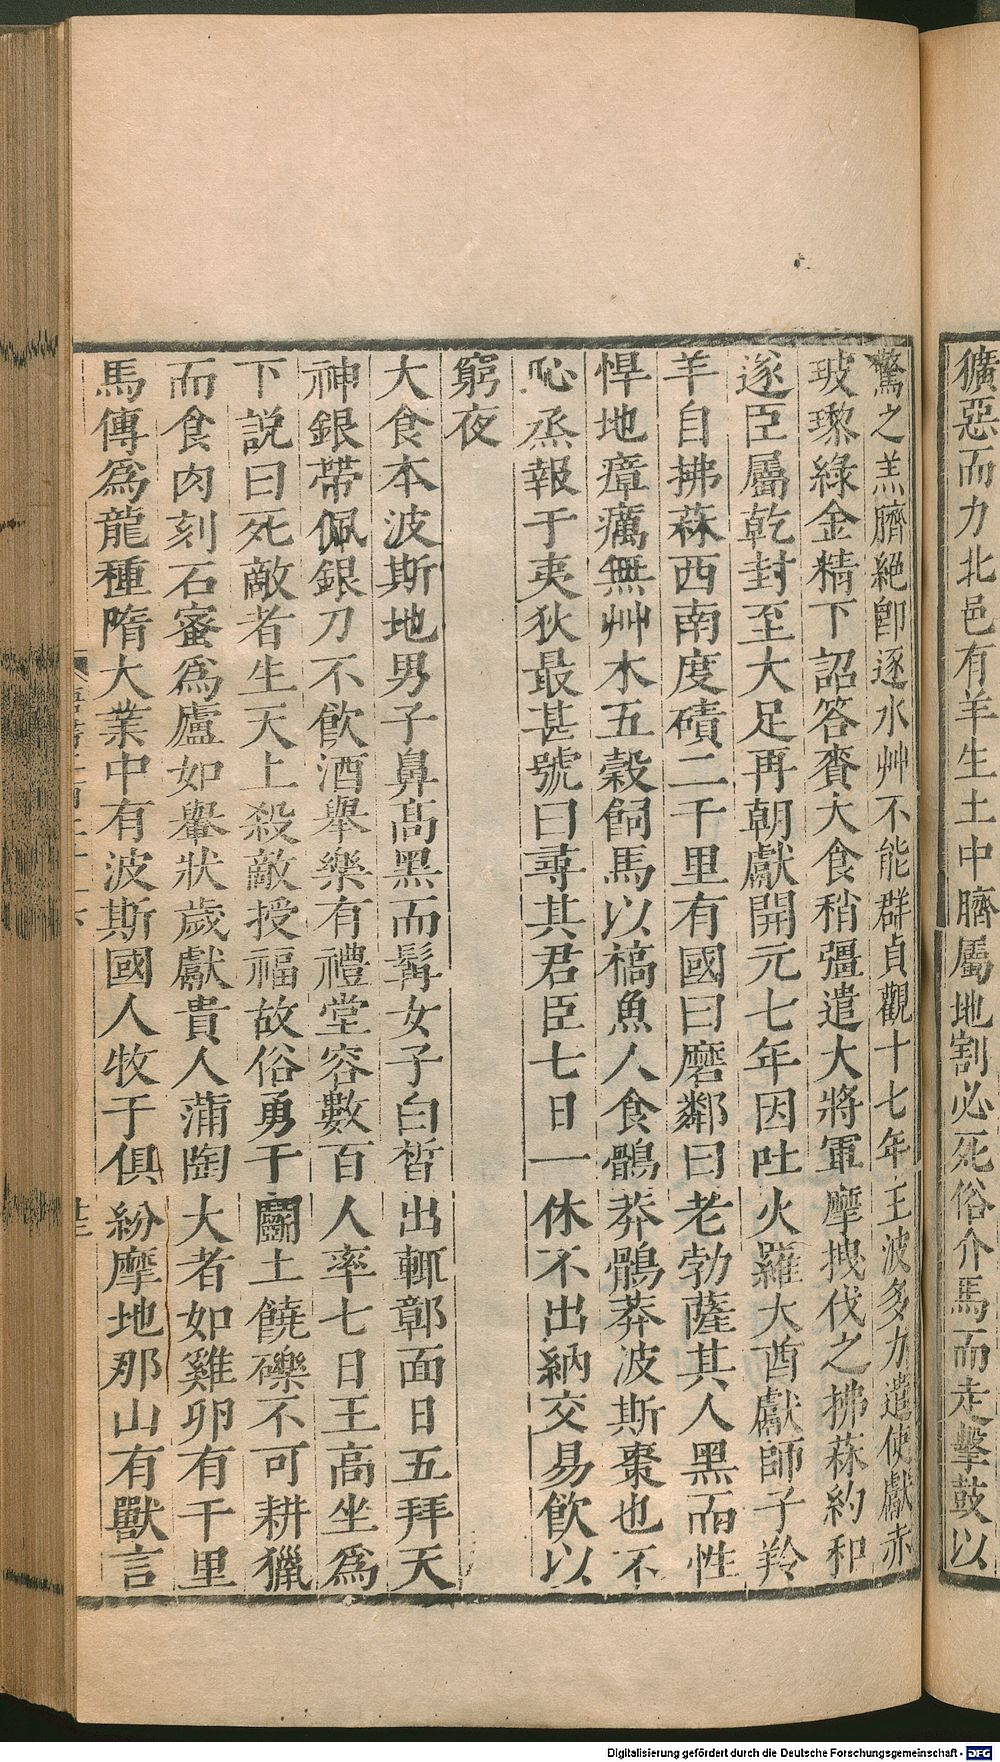 獷惡而力北邑有羊生土中臍屬地割必死俗介馬而走擊鼓以
驚之羔臍絕卽逐水艸不能群貞觀十七年王波多力遣使獻赤
玻瓈綠金精下詔答賚大食稍彊遣大將軍摩拽伐之拂菻約和
遂臣屬乾封至大足再朝獻開元七年因吐火羅大酋獻師子羚
羊自拂菻西南度磧二千里有國曰磨鄰曰老勃薩其人黑而性
悍地瘴癘無艸木五穀飼馬以槁魚人食鶻莽鶻莽波斯棗也不
恥烝報于夷狄最甚號曰尋其君臣七日一休不出納交易飲以
窮夜
大食本波斯地男子鼻高黑而髯女子白皙出輒鄣面日五拜天
神銀帶佩銀刀不飲酒舉樂有禮堂容數百人率七日王高坐爲
下說曰死敵者生天上殺敵授福故俗勇于鬬土饒礫不可耕獵
而食肉刻石蜜爲廬如轝狀歲獻貴人蒲陶大者如雞卵有千里
馬傳爲龍種隋大業中有波斯國人牧于俱紛摩地那山有獸言
Digitalisierung gefördert durch die Deutsche Forschungsgemeinschaft - DFG